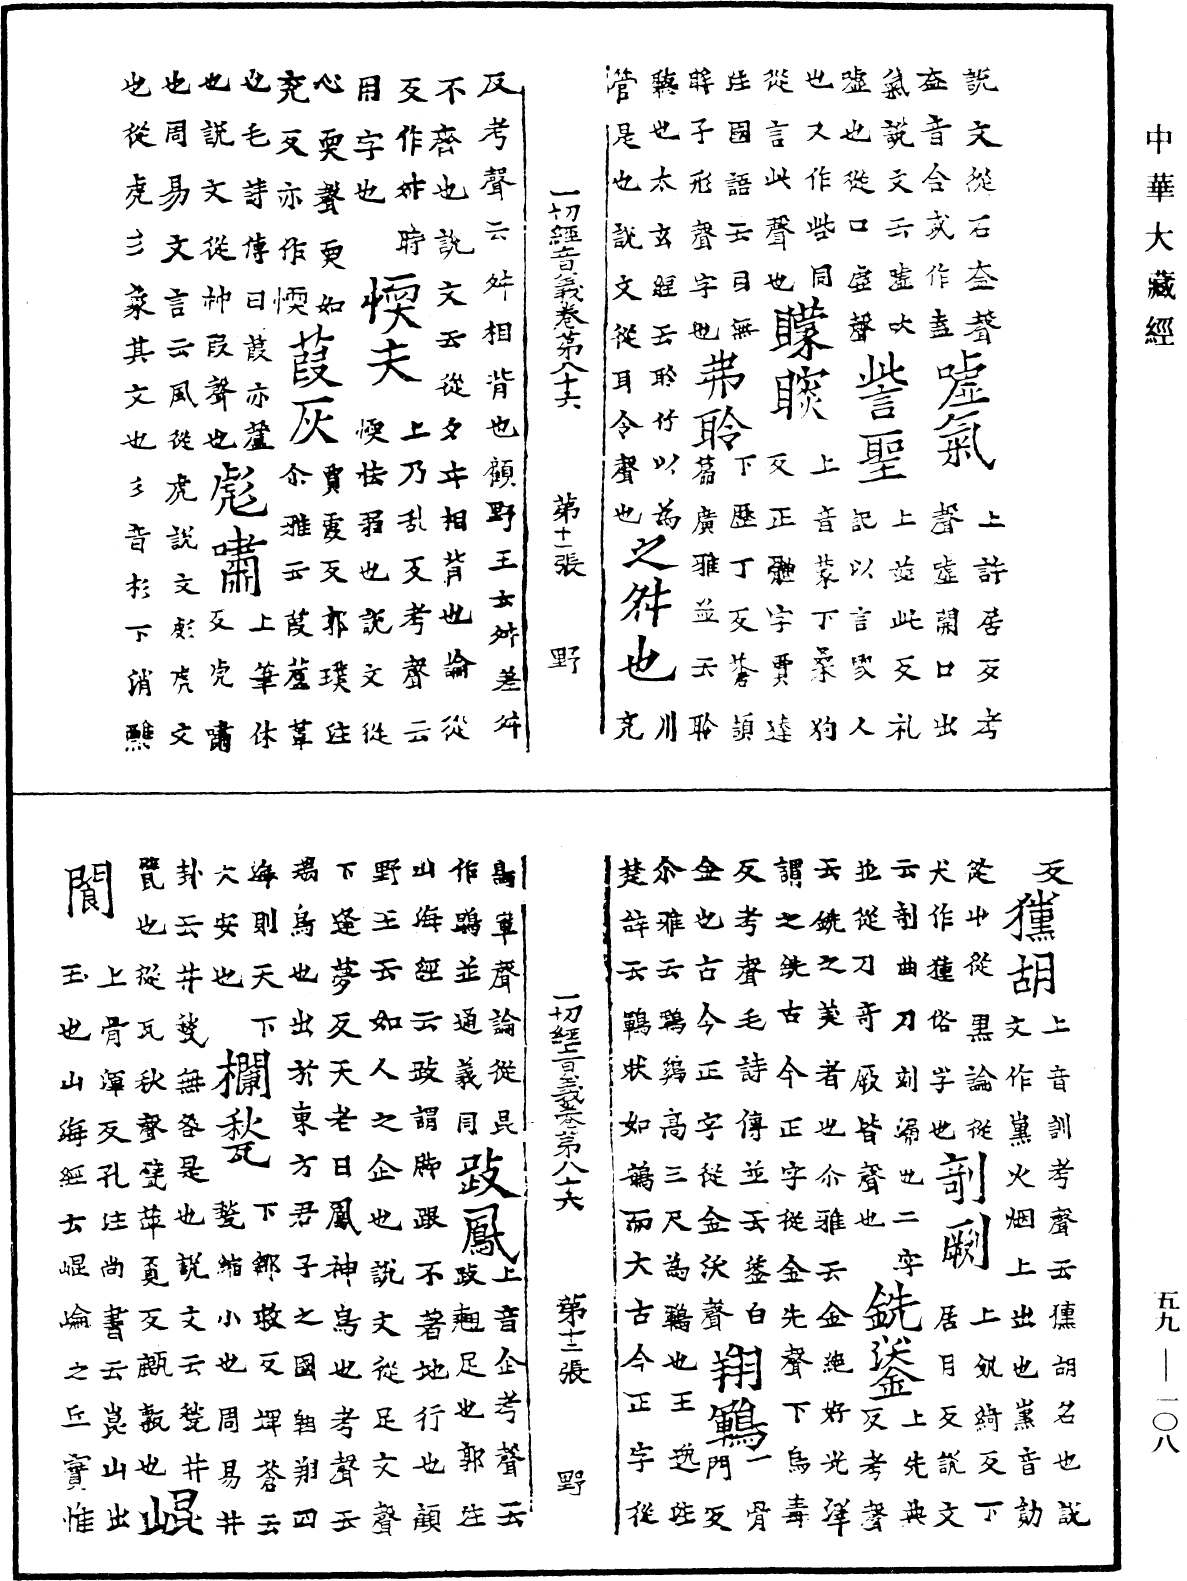 中華大藏經
説文從石盍聲
盍音合或作盍
噓氣
上許居反考
聲噓開口出
氣説文云噓吹
噓也從口虛聲
訾聖
上茲此反礼
記以言毁人
也又作些同
從言此聲也
矇瞍
上音蒙下桒狗
反正體字賈逵
注國語云目無
眸子形聲字也
弗聆
下歷丁反蒼頡
篇廣雅並云聆
聽也太玄經云聆竹以為
管是也說文從耳令聲也
之舛也
川
充
一切經音義卷第八十六 第十一張 野
反考聲云舛相背也顧野王云舛差舛
不齊也說文云從夕㐄相背也論從
反作舛時
用字也
愞夫
上乃乱反考聲云
愞怯弱也説文從
心耎聲耎如
兖反亦作愞
葭灰
賈霞反郭璞注
尒雅云葭蘆葦
也毛詩傳曰葭亦蘆
也説文從艸叚聲也
彪嘯
上筆休
反虎嘯
也周易文言云風從虎説文彪虎文
也從虎彡象其文也彡音杉下消
反
獯胡
上音訓考聲云獯胡名也説
文作薰火烟上出也薰音勛
從屮從黒論從
犬作獯俗字也
剞劂
上飢綺反下
居月反説文
云剞曲刀刻鏤也二字
並從刀奇厥皆聲也
銑鋈
上先典
反考聲
云銑之美者也尒雅云金絶好光澤
謂之銑古今正字從金先聲下烏毒
反考聲毛詩傳並云鋈白
金也古今正字從金沃聲
翔鶤
骨
門反
尒雅云鶤鷄高三尺為鶤也王逸注
楚詞云鶤狀如鶴而大古今正字從
一切經音義卷第八十六 第十二張 野
鳥軍聲論從昆
作鵾並通義同
跂鳳
上音企考聲云
跂翹足也郭注
山海經云跂謂脚跟不著地行也顧
野王云如人之企也説文從足支聲
下逢夢反天老曰鳳神鳥也考聲云
瑞鳥也出於東方君子之國翱翔四
海則天下
大安也
欄甃
下鄒救反埤蒼云
甃縮小也周易井
卦云井甃無咎是也説文云甃井
甓也從瓦秋聲甓萍覓反也
崐
閬
上骨渾反孔注尚書云崑山出
玉也山海經云崐崘之丘實惟
五九—一〇八